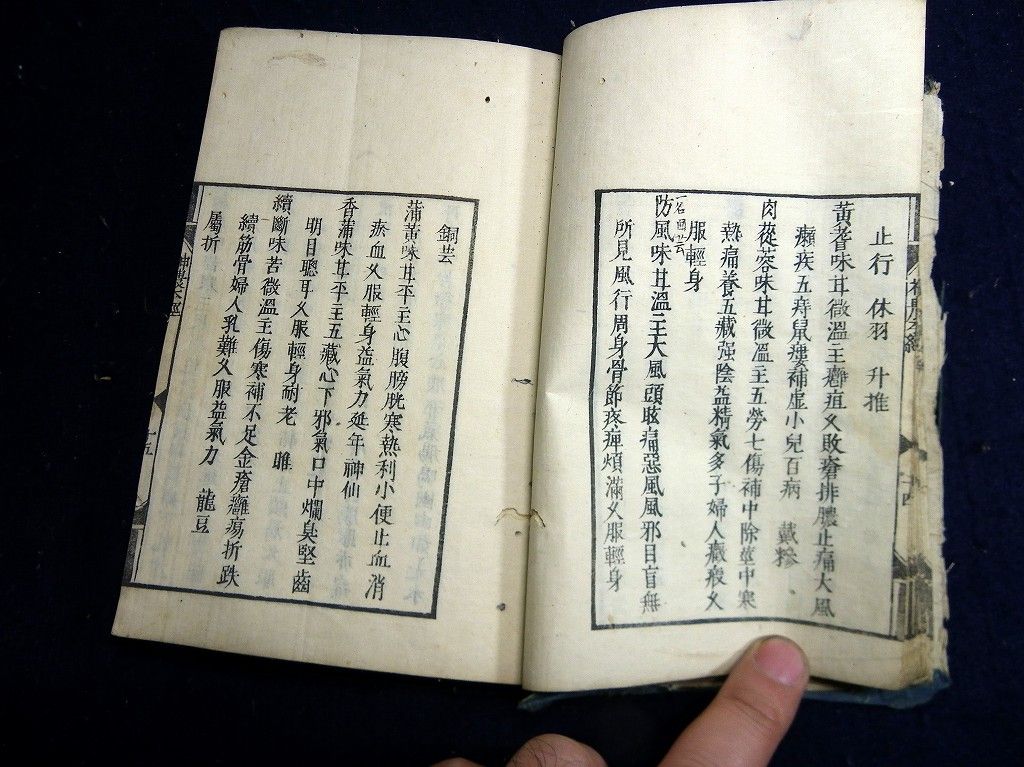 止行 休羽 升推
黃耆味甘微溫主癰疽久敗瘡排膿止痛大風
癩疾五痔鼠瘻補虛小兒百病 戴糝
肉蓯蓉味甘微溫主五勞七傷補中除莖中寒
熱痛養五藏强陰益精氣多子婦人癥瘕久
服輕身
防風味甘溫主大風頭眩痛惡風風邪目盲無
所見風行周身骨節疼痺煩滿久服輕身
一名茴芸
銅芸
蒲黃味甘平主心腹膀胱寒熱利小便止血消
瘀血久服輕身益氣力延年神仙
香蒲味甘平主五藏心下邪氣口中爛臭堅齒
明目聰耳久服輕身耐老 睢
續斷味苦微溫主傷寒補不足金瘡癰瘍折跌
續筋骨婦人乳難久服益氣力 龍豆
屬折
十五